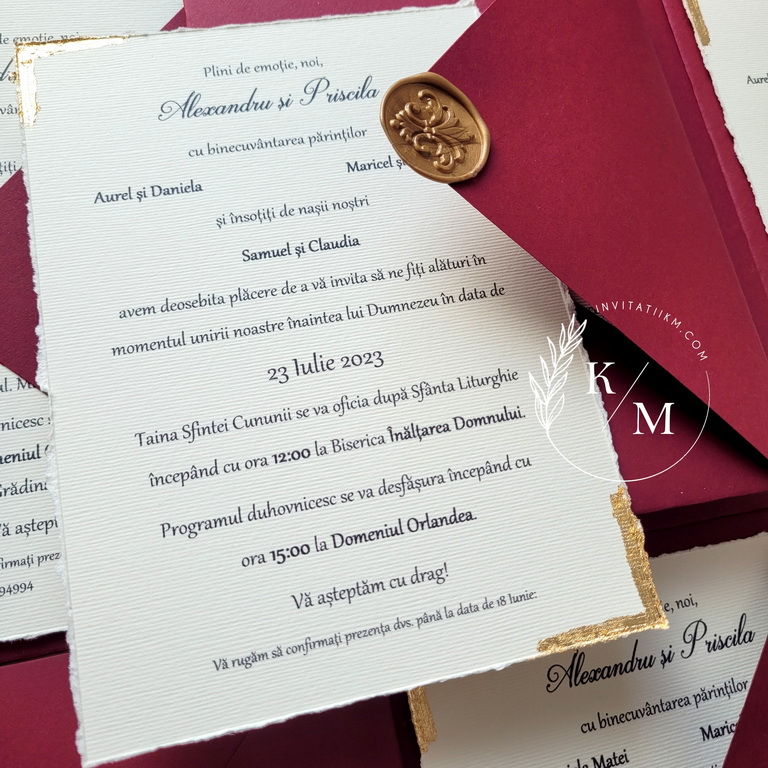 Plini de emoție, noi,
Alexandru și Priscila
cu binecuvântarea părinților
Aurel și Daniela
Maricel și
și însoțiți de nașii noștri
Samuel și Claudia
avem deosebita plăcere de a vă invita să ne fiți alături în
momentul unirii noastre înaintea lui Dumnezeu în data de
23 Iulie 2023
Taina Sfintei Cununii se va oficia după Sfânta Liturghie
începând cu ora 12:00 la Biserica Înălțarea Domnului.
Programul duhovnicesc se va desfășura începând cu
ora 15:00 la Domeniul Orlandea.
Vă așteptăm cu drag!
Vă rugăm să confirmați prezența dvs. până la data de 18 Iunie:
INVITATIIKM.COM
K/M
de emoție, noi,
Aurel
94994
noi,
Alexandru și Priscila
cu binecuvântarea părinților
Matei